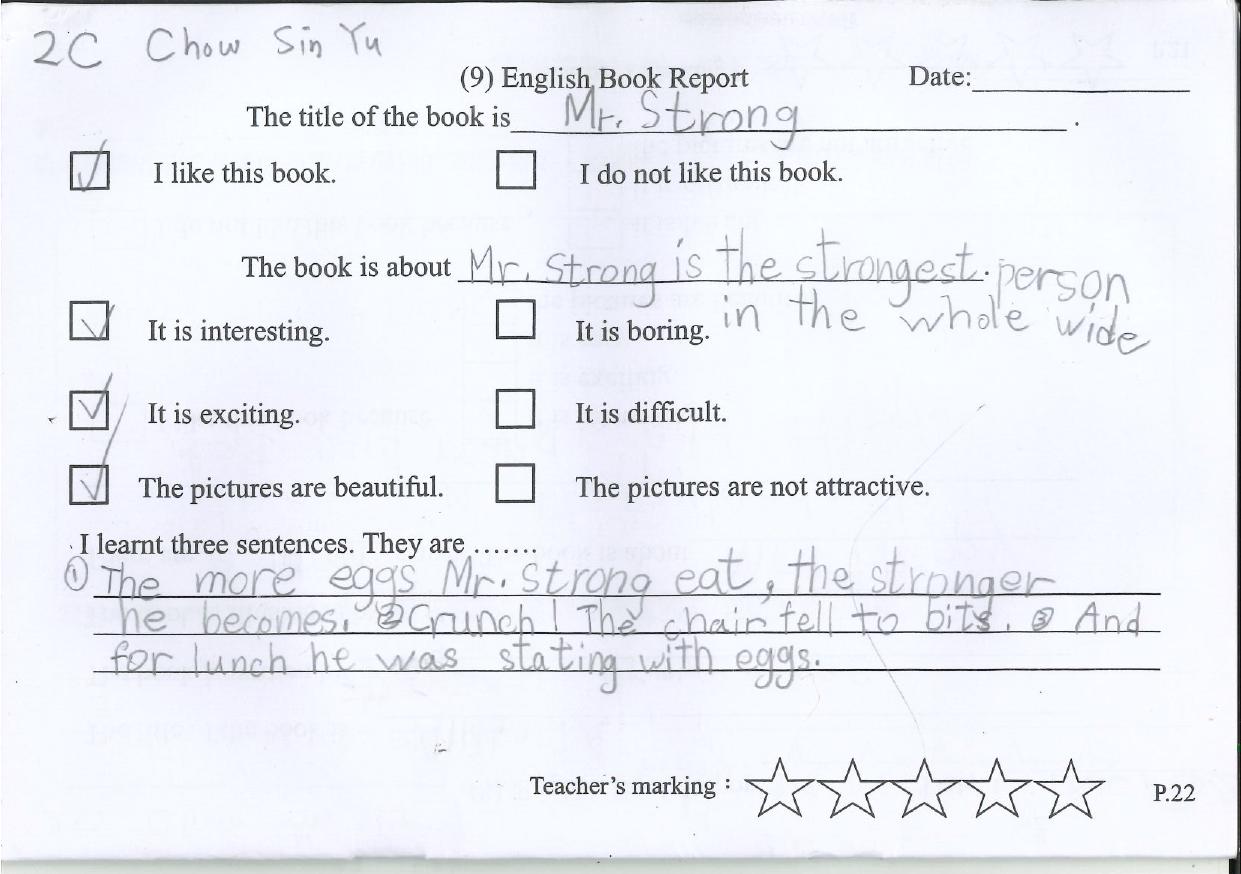 2C Chow Sin Yu
(9) English Book Report Date:
The title of the book is Mr. Strong .
I like this book. I do not like this book.
The book is about Mr. Strong is the strongest. person
in the whole wide
It is interesting. It is boring.
It is exciting. It is difficult.
The pictures are beautiful. The pictures are not attractive.
I learnt three sentences. They are .......
① The more eggs Mr. Strong eat, the stronger
he becomes. ② Crunch! The chair fell to bits. ③ And
for lunch he was stating with eggs.
Teacher's marking : P.22